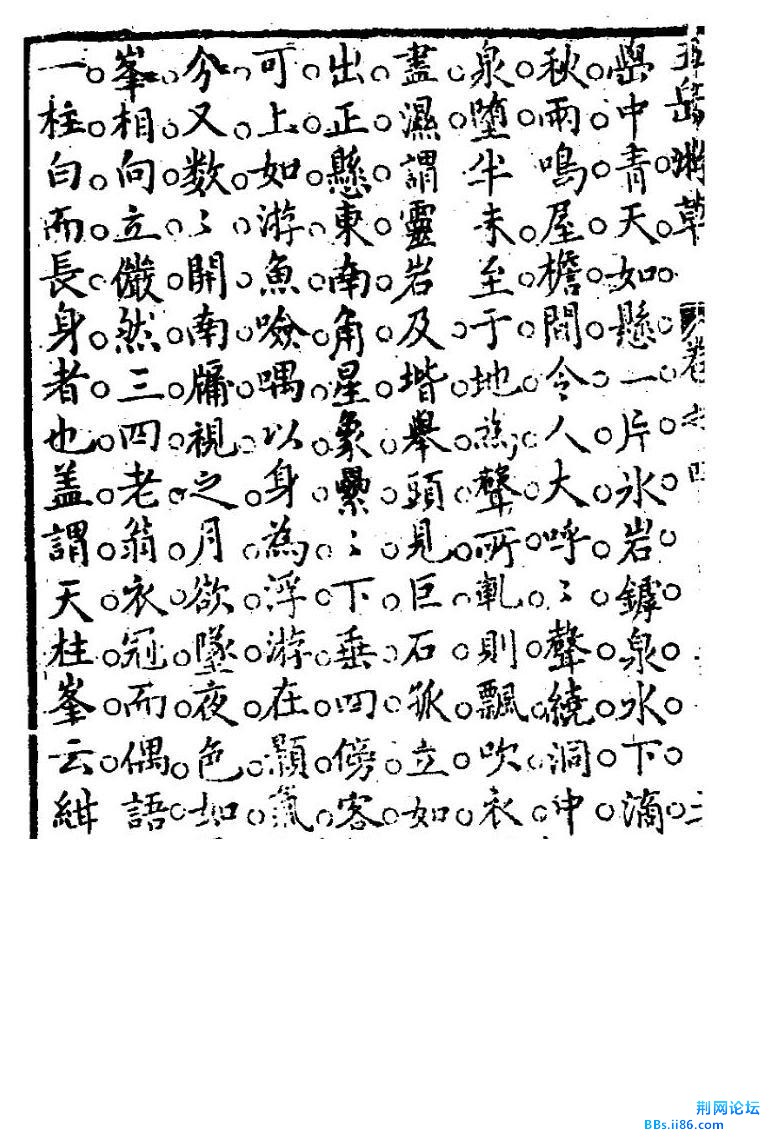 五岳游草 卷六 四
中青天如懸一片氷岩罅泉水下滴
秋雨鳴屋檐間令人大呼〻聲繞洞中
泉墮半未至于地為聲所軋則飄吹衣
盡濕謂靈岩及堦舉頭見巨石孤立如
出正懸東南角星象纍〻下垂四傍客
可上如游魚噞喁以身為浮游在顥氣
分又数〻開南牖視之月欲墜夜色如
峯相向立儼然三四老翁衣冠而偶語
一柱白而長身者也盖謂天柱峯云紺
荆网论坛
BBs.ii86.com